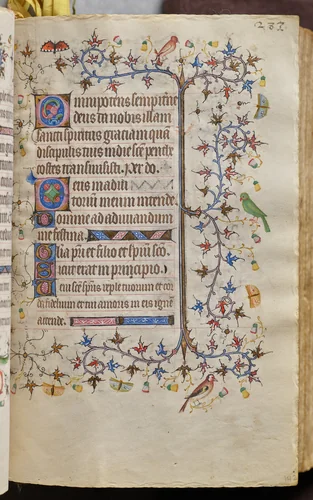 Omnipotens sempiterne
deus da nobis illam
sancti spiritus graciam quā
discipulis tuis in die scē pente
costes transmisisti. per do.
Deus in adiu
torium meum intende
Domine ad adiuuandum
me festina.
Glia pri et filio et spiri sco
sicut erat in principio.
Veni scē spūs reple tuorum et cor
da fidelium et tui amoris in eis ignē